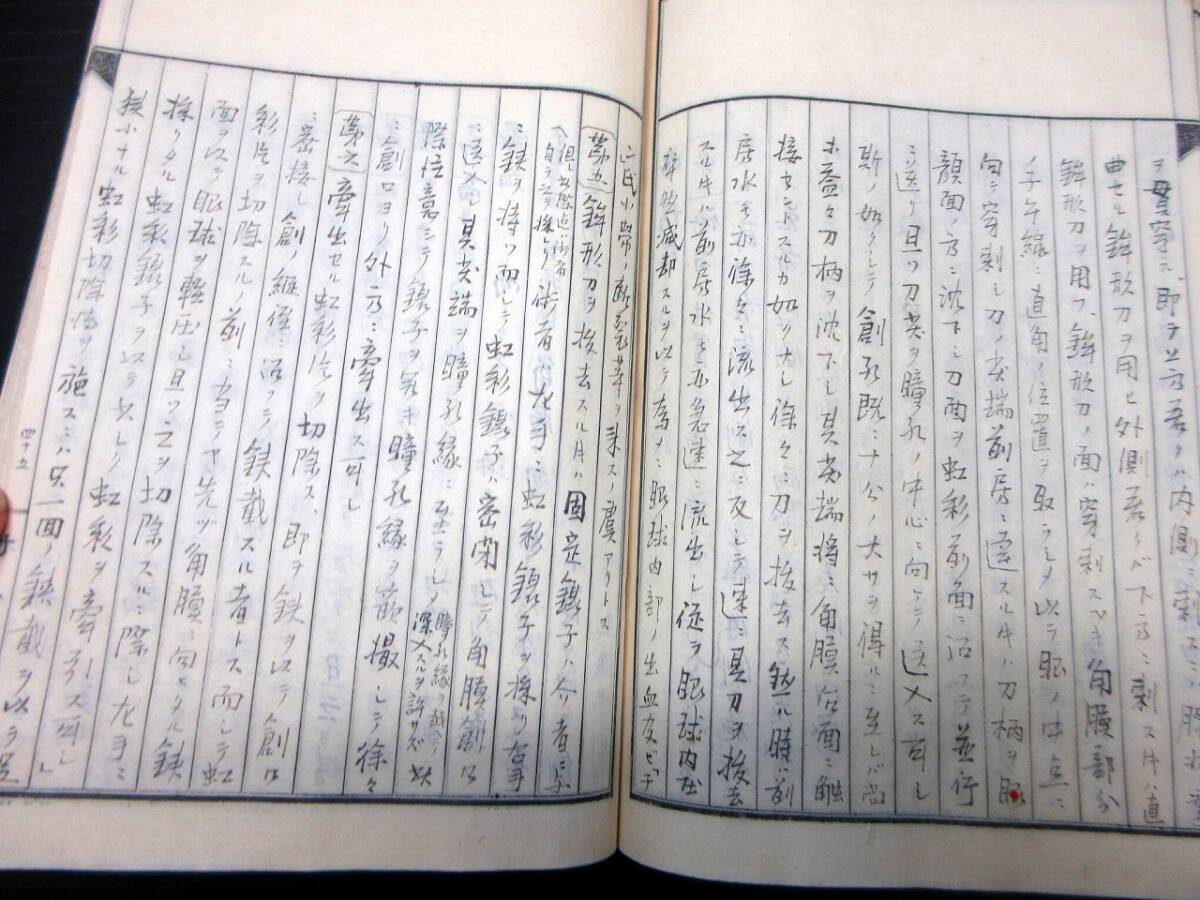 ヲ貫穿ス、即チ上方若クハ内側ニ刺スニハ
曲セル鉾形刀ヲ用ヒ外側若クバ下方ニ刺スキハ直
鉾形刀ヲ用フ、鉾形刀ノ面ハ穿刺スベキ角膜部分
ノ子午線ニ直角ノ位置ヲ取ラシメ以テ眼ノ中点ニ
向テ穿刺シ刀ノ尖端前房ニ達スルキハ刀柄ヲ
顔面ノ方ニ沈下シ刀面ヲ虹彩前面ニ沿フテ並行
ニ送リ且ツ刀尖ヲ瞳孔ノ中心ニ向ケテ送入ス可シ
斯ノ如クシテ創孔既ニ十分ノ大サヲ得ルニ至レバ尚
ホ益々刀柄ヲ沈下シ其尖端将ニ角膜後面ニ触
接セントスルカ如クナシ徐々ニ刀ヲ抜去ス然ル時ハ前
房水モ亦徐々ニ流出ス之ニ反シテ速ニ其刀ヲ抜去
スルキハ前房水モ亦急速ニ流出シ従テ眼球内圧
卒然減却スルヲ以テ為メニ眼球内部ノ出血及ビチ
ン氏小帯ノ断裂等ヲ来スノ虞アリトス
(第五)鉾形刀ヲ抜去スル片ハ固定鑷子ハ介者ニ与
(但此際迄ハ術者自ラ之ヲ操レリ)術者ハ左手ニ虹彩鑷子ヲ採リ右手
ニ鋏ヲ持ツ而シテ虹彩鑷子ハ密閉シテ角膜創口
ニ送入シ其尖端ヲ瞳孔縁ニ至ラシメ(瞳孔縁ヲ越ヘテ深入スルヲ許サズ)此
際注意シテ鑷子ヲ開キ瞳孔縁ヲ嵌撮シテ徐々
ニ創口ヨリ外方ニ牽出ス可シ
(第六)牽出セル虹彩片ヲ切除ス、即チ鋏ヲ以テ創口
ニ密接シ創ノ縦径ニ沿フテ鋏截スル者トス而シテ虹
彩片ヲ切除スルノ前ニ当テヤ先ヅ角膜ニ向ケタル鋏
面ヲ以テ眼球ヲ軽圧シ且ツ之ヲ切除スルニ際シ左手ニ
採リタル虹彩鑷子ヲ以テ少シク虹彩ヲ牽引ス可シ」
狭小ナル虹彩切除術ヲ施スニハ只一回ノ鋏截ヲ以テ足
四十五